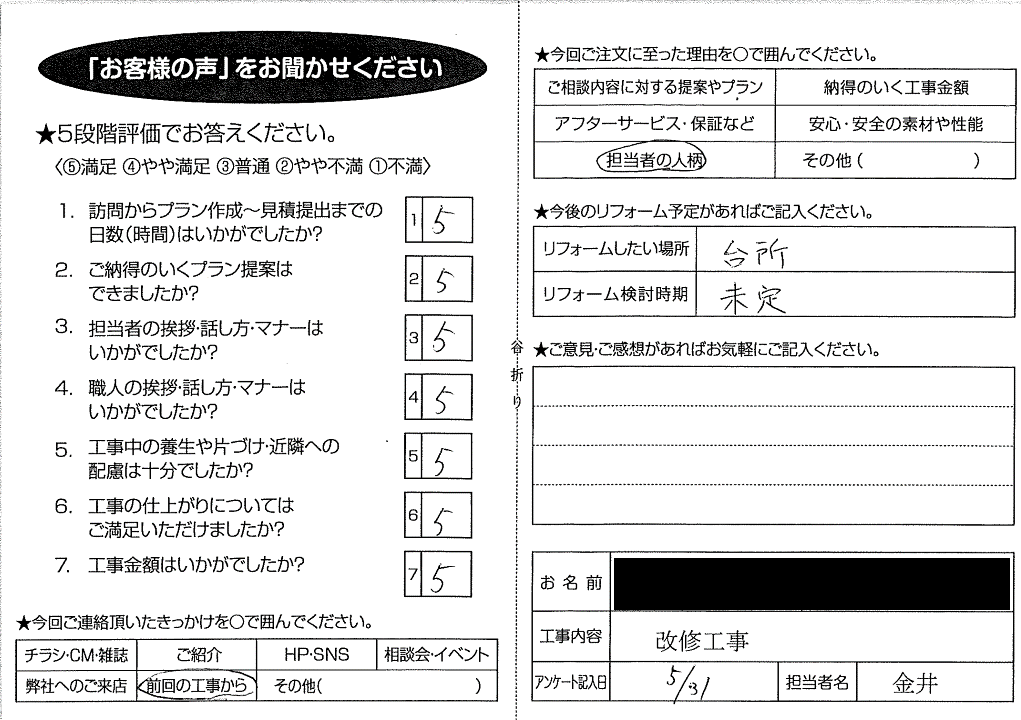 「お客様の声」をお聞かせください
★5段階評価でお答えください。
〈⑤満足 ④やや満足 ③普通 ②やや不満 ①不満〉
1. 訪問からプラン作成〜見積提出までの
日数(時間)はいかがでしたか?
1 5
2. ご納得のいくプラン提案は
できましたか?
2 5
3. 担当者の挨拶・話し方・マナーは
いかがでしたか?
3 5
4. 職人の挨拶・話し方・マナーは
いかがでしたか?
4 5
5. 工事中の養生や片づけ・近隣への
配慮は十分でしたか?
5 5
6. 工事の仕上がりについては
ご満足いただけましたか?
6 5
7. 工事金額はいかがでしたか?
7 5
★今回ご連絡頂いたきっかけを○で囲んでください。
チラシ・CM・雑誌 ご紹介 HP・SNS 相談会・イベント
弊社へのご来店 前回の工事から その他( )
谷折り
★今回ご注文に至った理由を○で囲んでください。
ご相談内容に対する提案やプラン 納得のいく工事金額
アフターサービス・保証など 安心・安全の素材や性能
担当者の人柄 その他( )
★今後のリフォーム予定があればご記入ください。
リフォームしたい場所 台所
リフォーム検討時期 未定
★ご意見・ご感想があればお気軽にご記入ください。
お名前
工事内容 改修工事
アンケート記入日 5/31 担当者名 金井